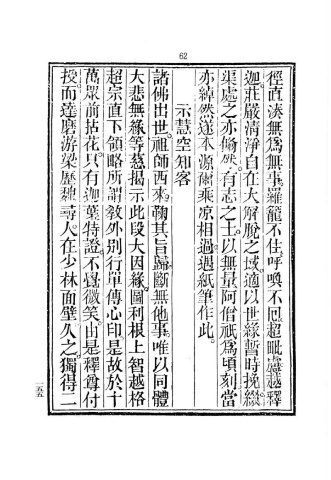 62
徑直湊無爲無事羅籠不住呼喚不回超毗盧越釋
迦莊嚴清淨自在大解脫之域適以世緣暫時挽繆
渠處之亦翛然有志之士以無量阿僧祇爲頃刻當
亦綽然遂本源爾乘凉相過遇紙筆作此
示慧空知客
諸佛出世祖師西來鞠其旨歸斷無他事唯以同體
大悲無緣等慈揭示此段大因緣圖利根上智越格
超宗直下領略所謂敎外别行單傳心印是故於十
萬衆前拈花只有迦葉特證不覺微笑由是釋尊付
授而達磨游梁歷魏尋人在少林面壁久之獨得二
一五五